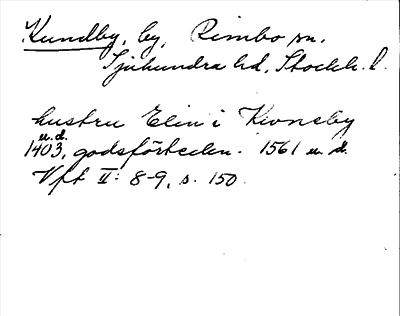 Kundby, by, Rimbo sn.
Sjuhundra hd, Stockh. l.
hustru Elin i Kwnsby
u.d.
1403, godsförteckn. 1561 u. d.
Vft II: 8-9, s. 150